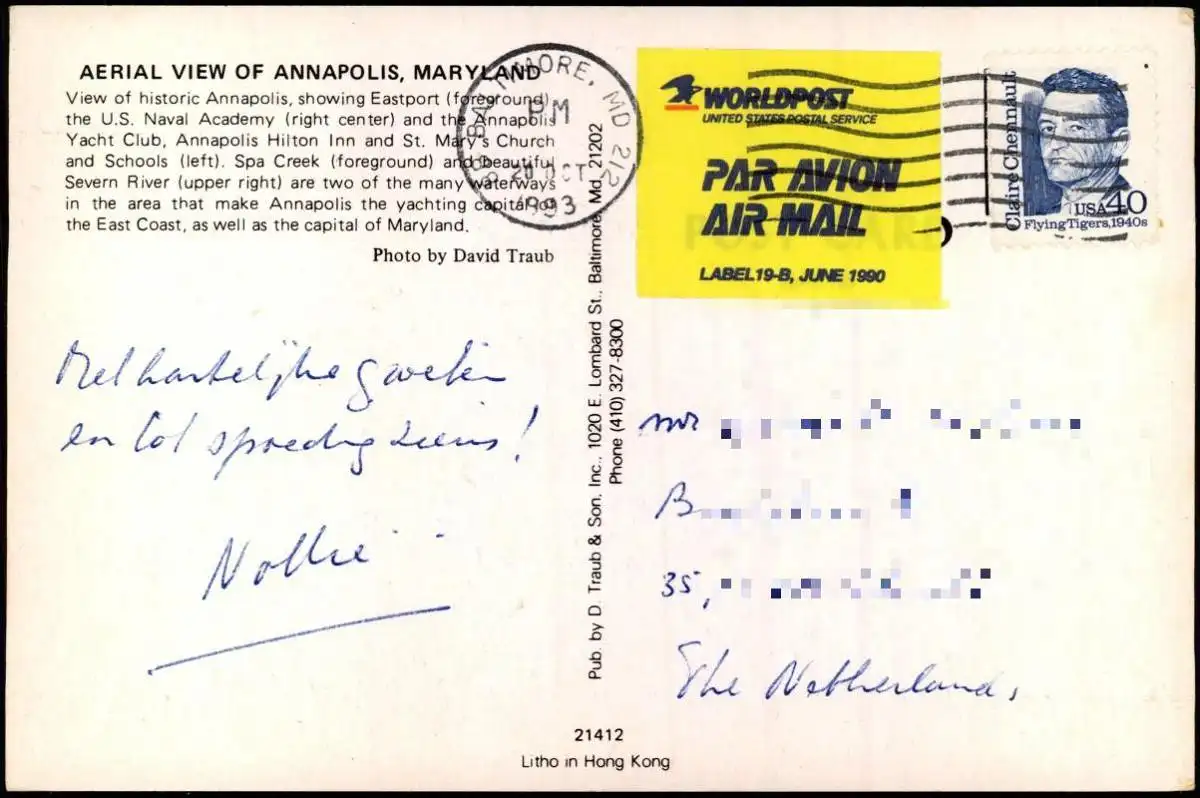 AERIAL VIEW OF ANNAPOLIS, MARYLAND
View of historic Annapolis, showing Eastport (foreground)
the U.S. Naval Academy (right center) and the Annapolis
Yacht Club, Annapolis Hilton Inn and St. Mary's Church
and Schools (left). Spa Creek (foreground) and beautiful
Severn River (upper right) are two of the many waterways
in the area that make Annapolis the yachting capital of
the East Coast, as well as the capital of Maryland.
Photo by David Traub
Met hartelijke groeten
en tot spoedig ziens!
Nollie
BALTIMORE, MD 212
PM
20 OCT
1993
Pub. by D. Traub & Son. Inc., 1020 E. Lombard St., Baltimore, Md. 21202
Phone (410) 327-8300
WORLDPOST
UNITED STATES POSTAL SERVICE
PAR AVION
AIR MAIL
LABEL 19-B, JUNE 1990
POST CARD
Claire Chennault
USA 40
Flying Tigers, 1940s
35,
The Netherlands,
21412
Litho in Hong Kong